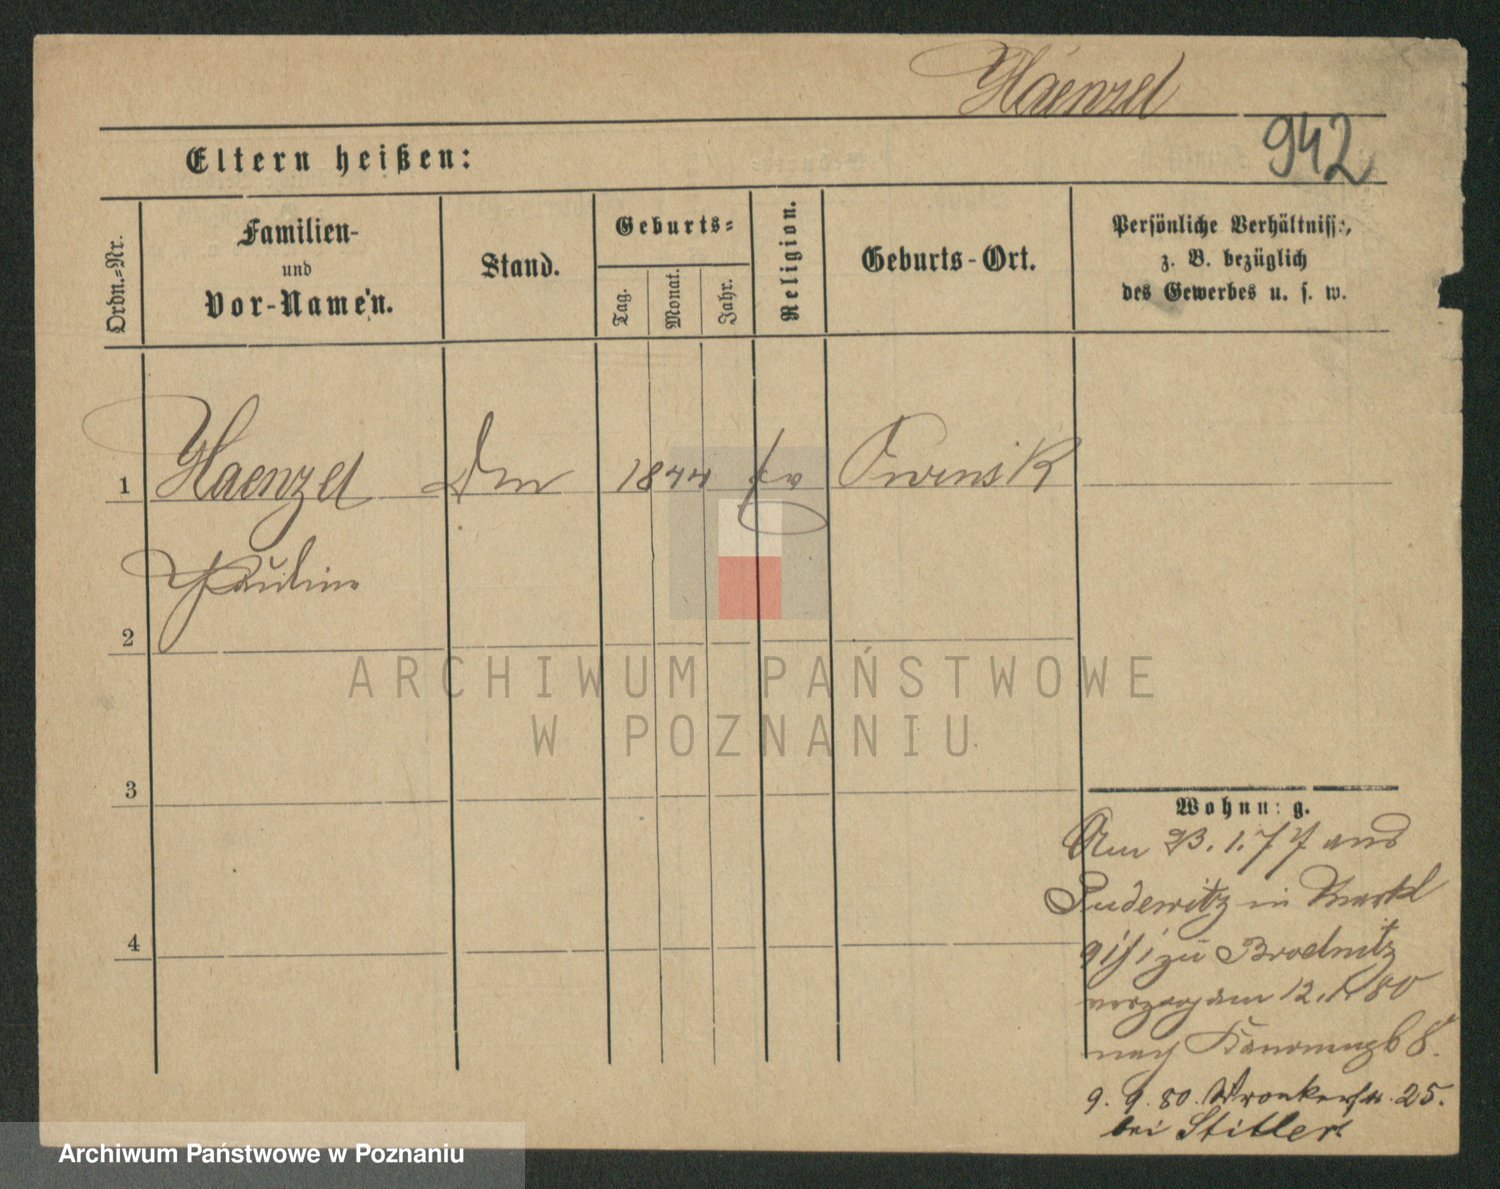 Haenzel
942
Eltern heißen:
Ordn.=Nr.
Familien-
und
Vor-Namen.
Stand.
Geburts=
Tag.
Monat.
Jahr.
Religion.
Geburts-Ort.
Persönliche Verhältnisse,
z. B. bezüglich
des Gewerbes u. s. w.
1
Haenzel
1844
ev
Owinsk
Pauline
2
3
4
Wohnung.
Am 23. 1. 77 aus
Pudewitz in
zu Brodnitz
verzog am 12. 80
nach 8.
9. 9. 80. Wronkerstr. 25.
bei Stiller.
ARCHIWUM PAŃSTWOWE
W POZNANIU
Archiwum Państwowe w Poznaniu